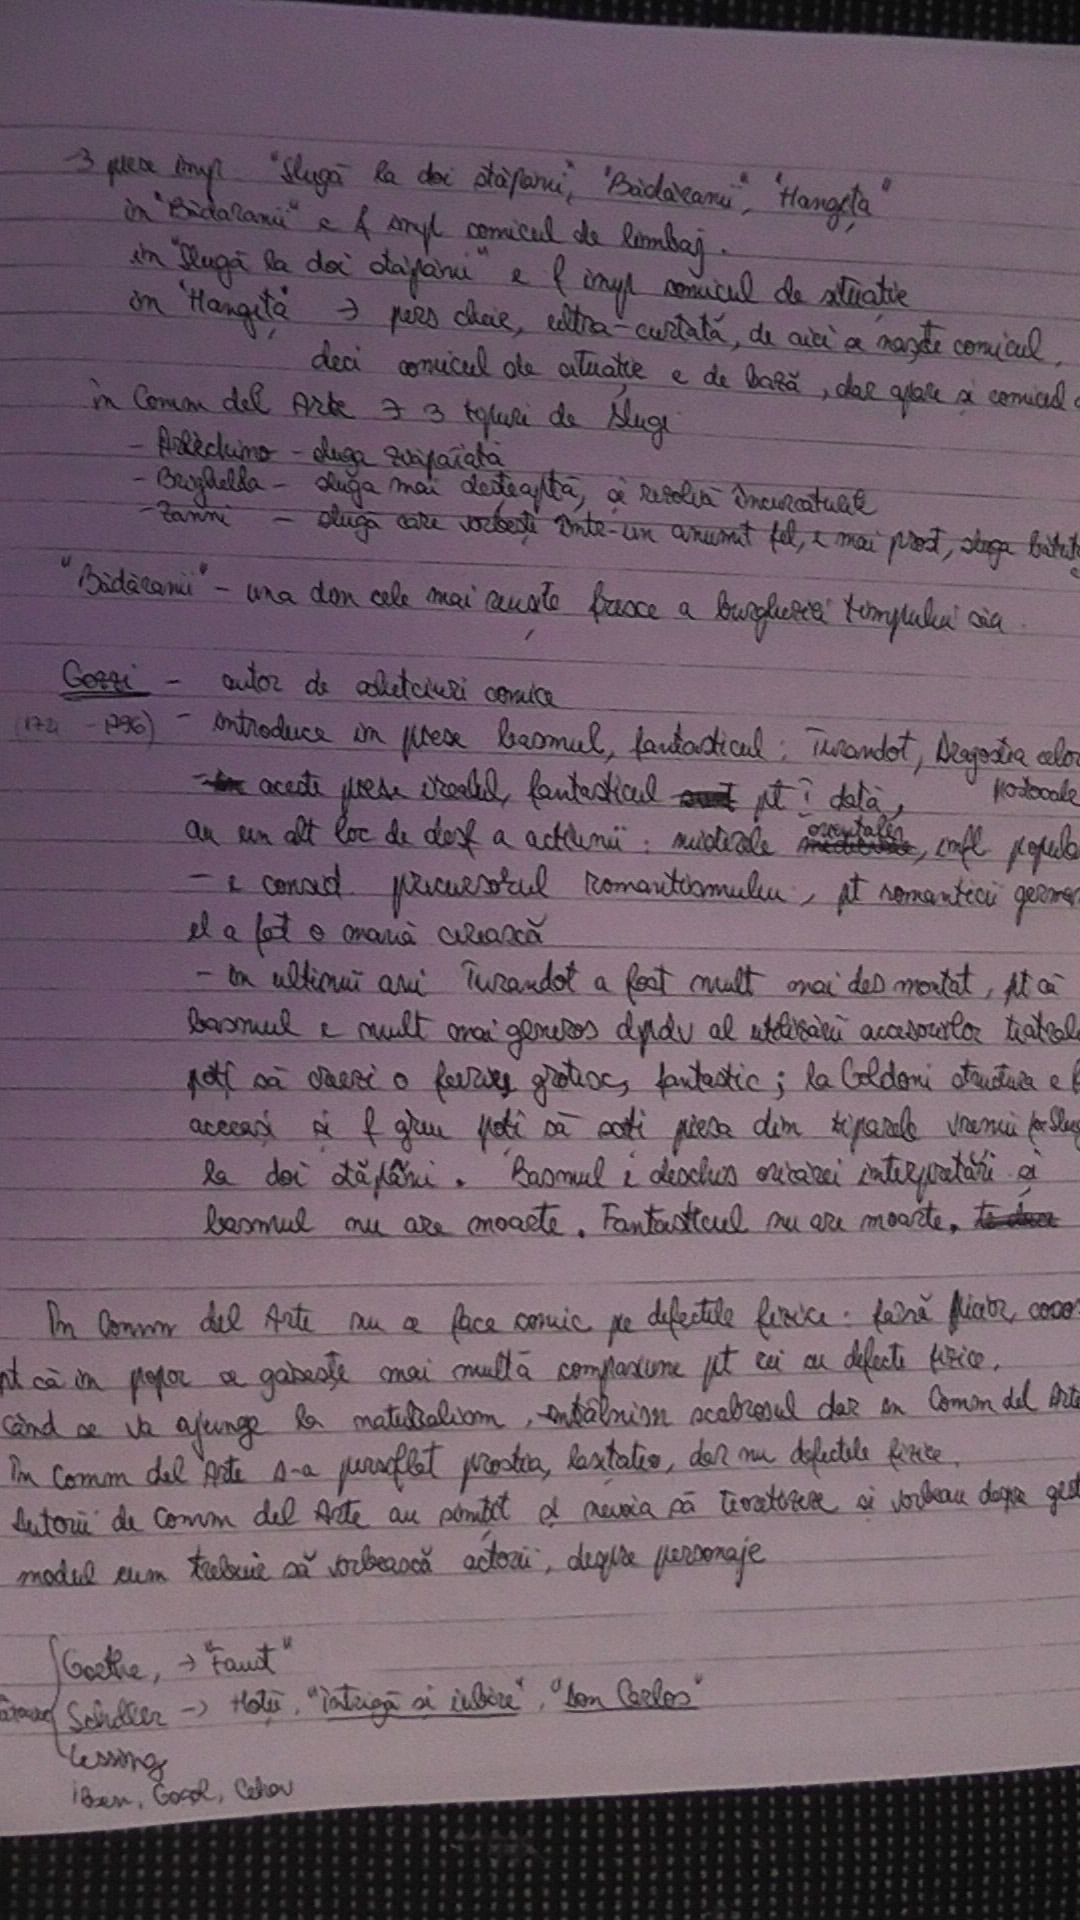 →3 piese imp. "Slugă la doi stăpâni", "Bădăranii", "Hangița"
în "Bădăranii" e f imp comicul de limbaj.
în "Slugă la doi stăpâni" e f imp comicul de situație
în "Hangița" → pers cheie, ultra-curtată, de aici se naște comicul,
deci comicul de situație e de bază, dar apare și comicul
în Comm del Arte ∃ 3 tipuri de slugi
- Arlechino - sluga zvăpăiată
- Brighella - sluga mai deșteaptă, ce rezolvă încurcăturile
- Zanni - sluga care vorbește într-un anumit fel, e mai prost, sluga bătută
"Bădăranii" - una din cele mai reușite fresce a burgheziei timpului său.
Gozzi - autor de scheciuri comice
- 1796) - introduce în piese basmul, fantasticul: Turandot, Dragostea celor
portocale
aceste piese irealul, fantasticul pt I dată,
au un alt loc de desf a acțiunii: misterele orientale, infl popula
- e consid. precursorul romantismului, pt romanticii german
el a fost o mană cerească
- în ultimii ani Turandot a fost mult mai des montat, pt că
basmul e mult mai generos dpdv al utilizării accesoriilor teatrale
poți să creezi o feerie, grotesc, fantastic; la Goldoni structura e f
aceeași și f greu poți să scoți piesa din tiparele vremii
la doi stăpâni. Basmul e deschis oricărei interpretări și
basmul nu are moarte. Fantasticul nu are moarte.
În Comm del Arte nu se face comic pe defectele fizice: fără picior, cocoș
pt că în popor se găsește mai multă compasiune pt cei cu defecte fizice.
Când se va ajunge la naturalism, întâlnim scabrosul dar în Comm del Arte
În Comm del Arte s-a persiflat prostia, lașitatea, dar nu defectele fizice.
Autorii de Comm del Arte au simțit și nevoia să teoretizeze și vorbeau despre gest
modul cum trebuie să vorbească actorii, despre personaje
Goethe, → "Faust"
Schiller → Hoții, "Intrigă și iubire", "Don Carlos"
Lessing
Ibsen, Gogol, Cehov